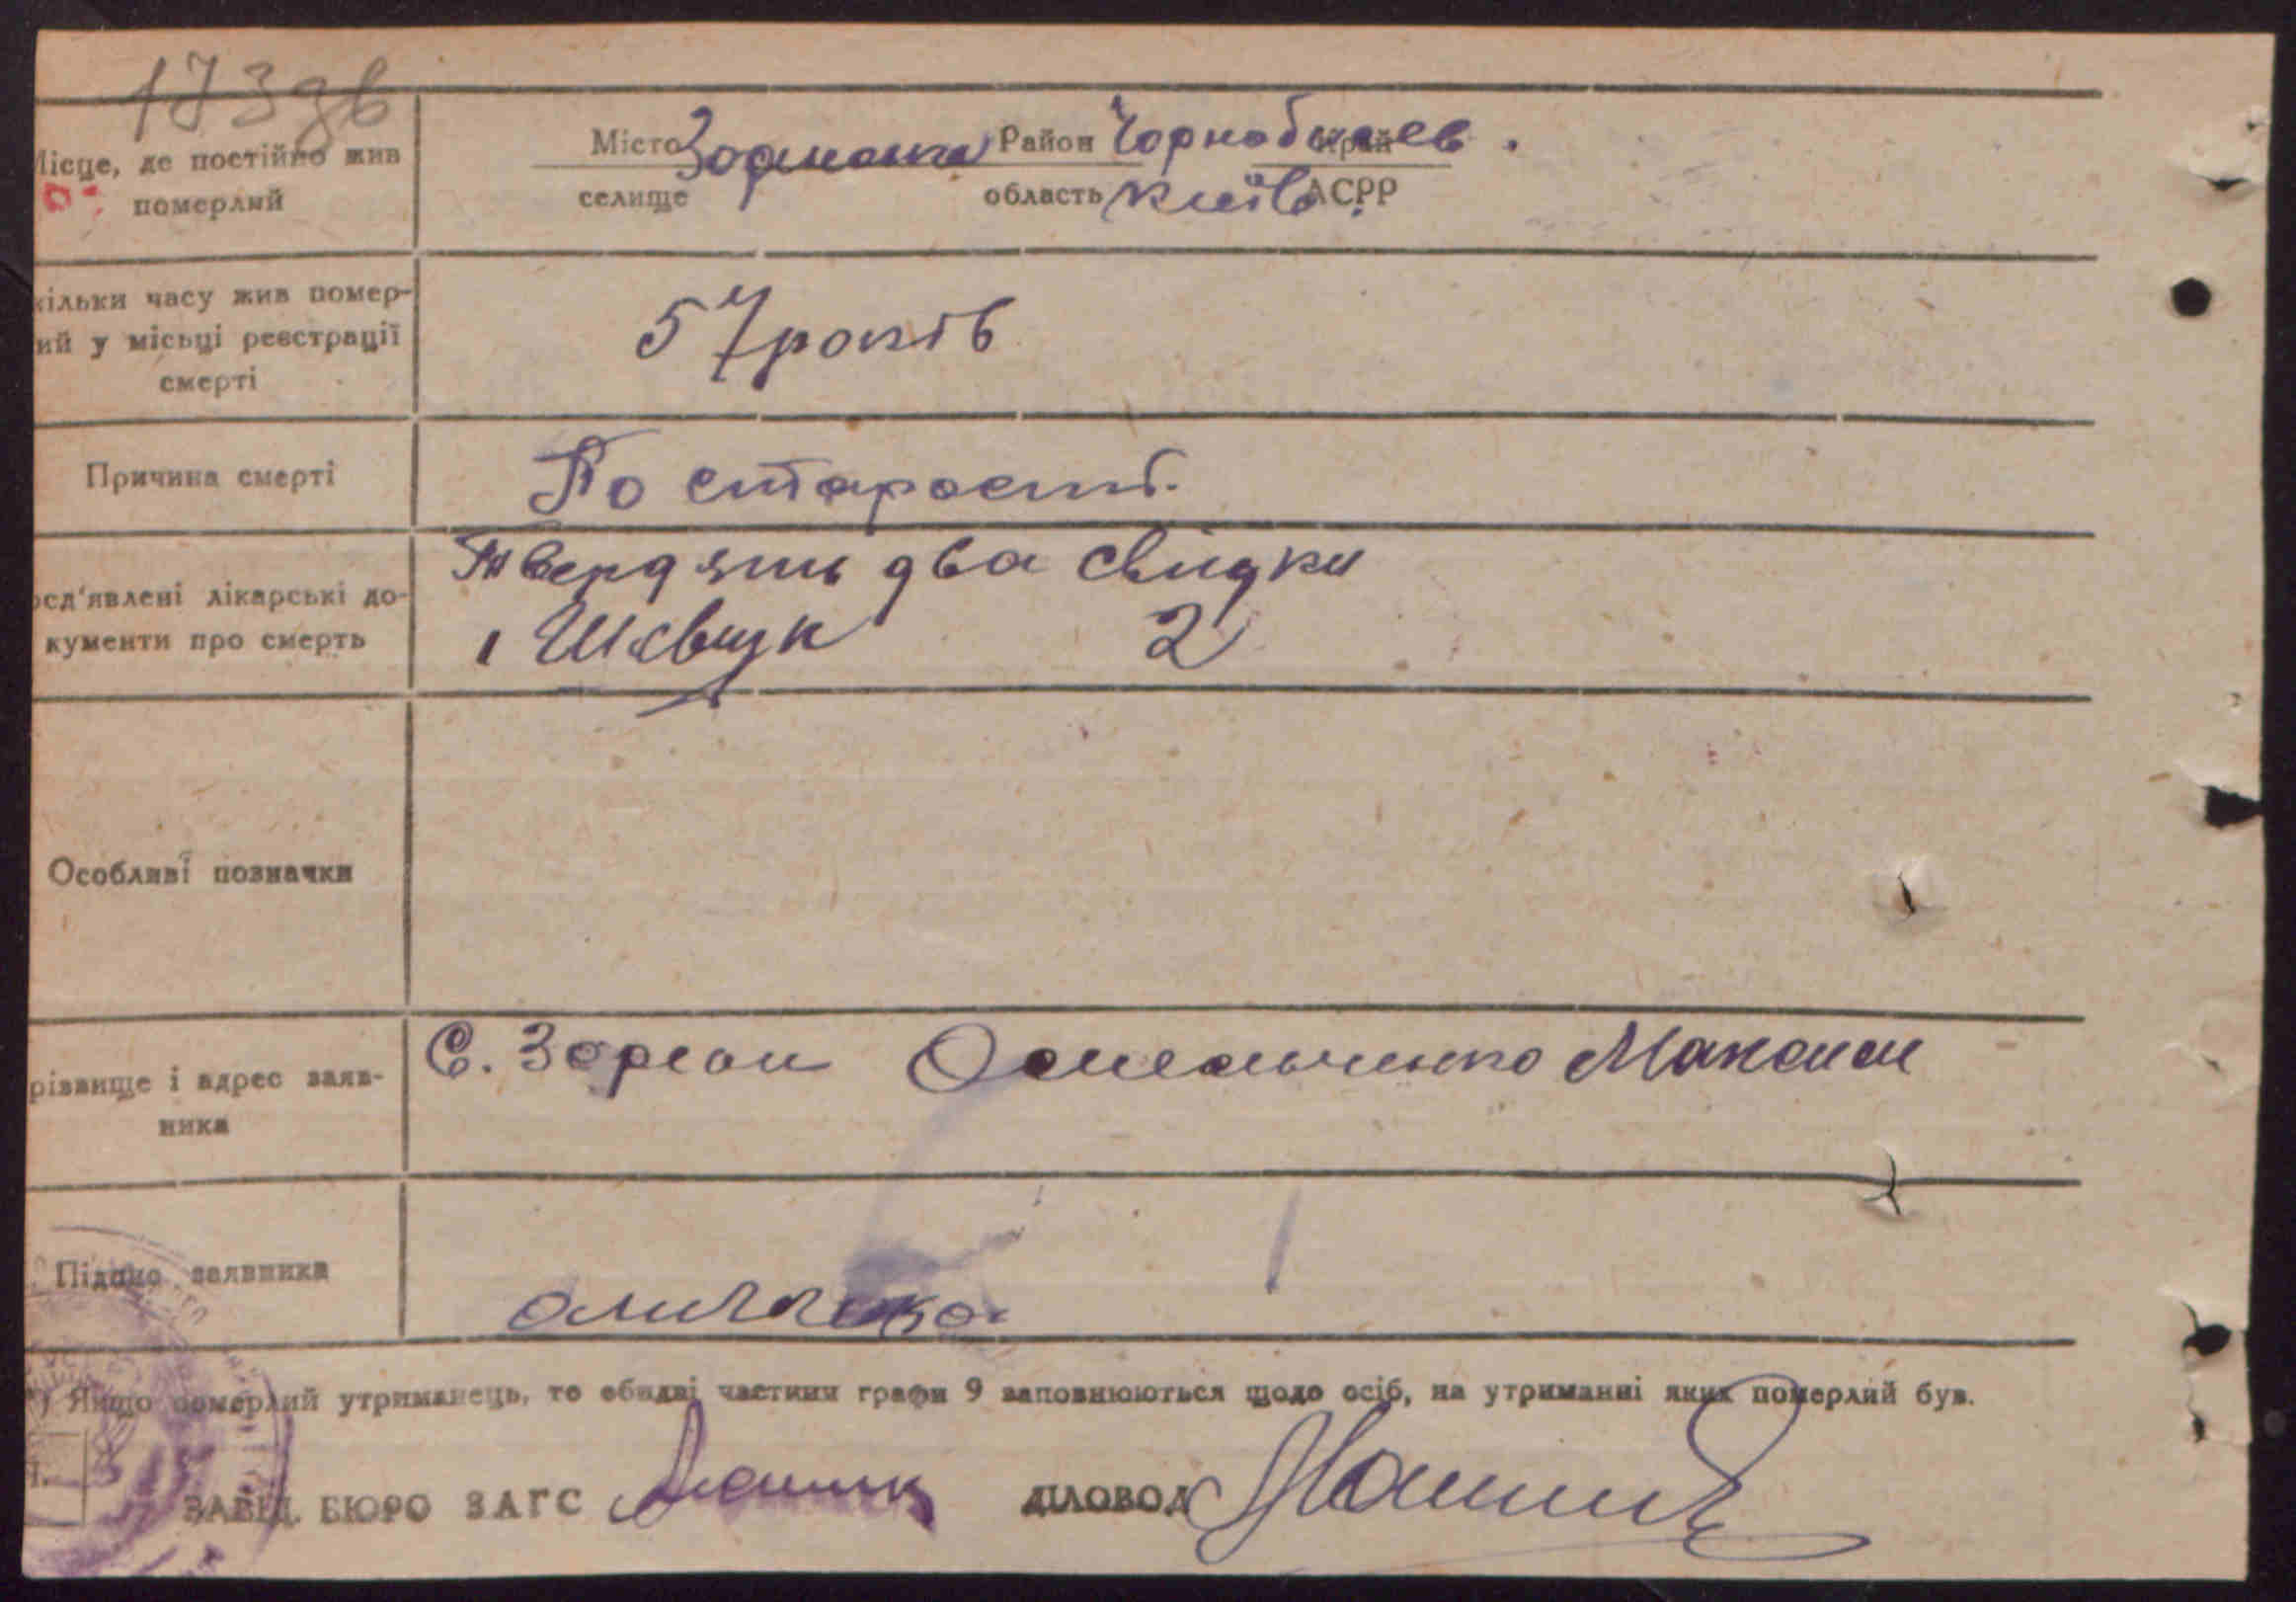 173зв
Місце, де постійно жив
померлий
Місто Район Чорнобаєв. Край
селище область Київ. АСРР
кільки часу жив помер-
ий у місьці реєстрації
смерті
57 років
Причина смерті
По старості.
осд'явлені лікарські до-
кументи про смерть
Твердять два свидки
1 Шевчук 2
Особливі позначки
різвище і адрес заяв-
ника
С. Зорєвн Омельченко Максим
Підпис заявника
*) Якщо померлий утриманець, то обидві частини графи 9 заповнюються щодо осіб, на утриманні яких померлий був.
ЗАВІД. БЮРО ЗАГС ДІЛОВОД